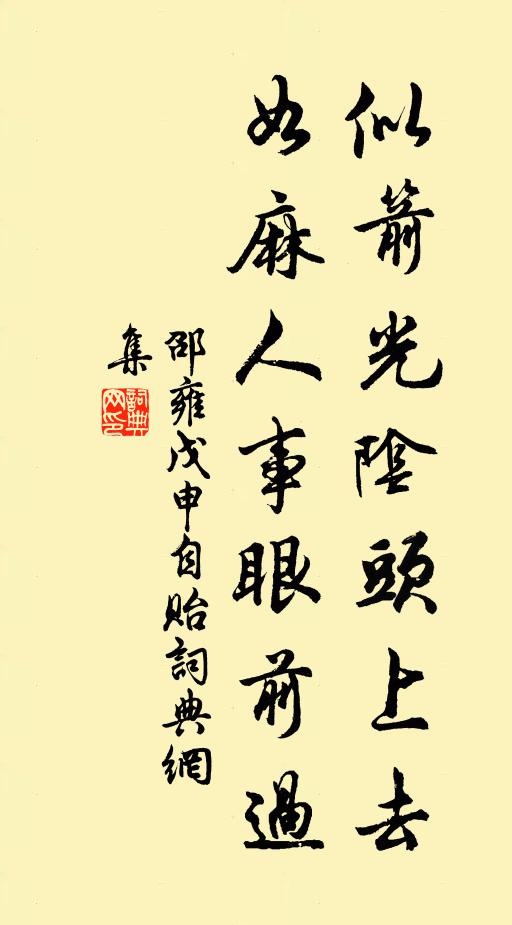 似箭光陰頭上去
如麻人事眼前過
邵雍戊申自貽詞典網
集
詞典
网印